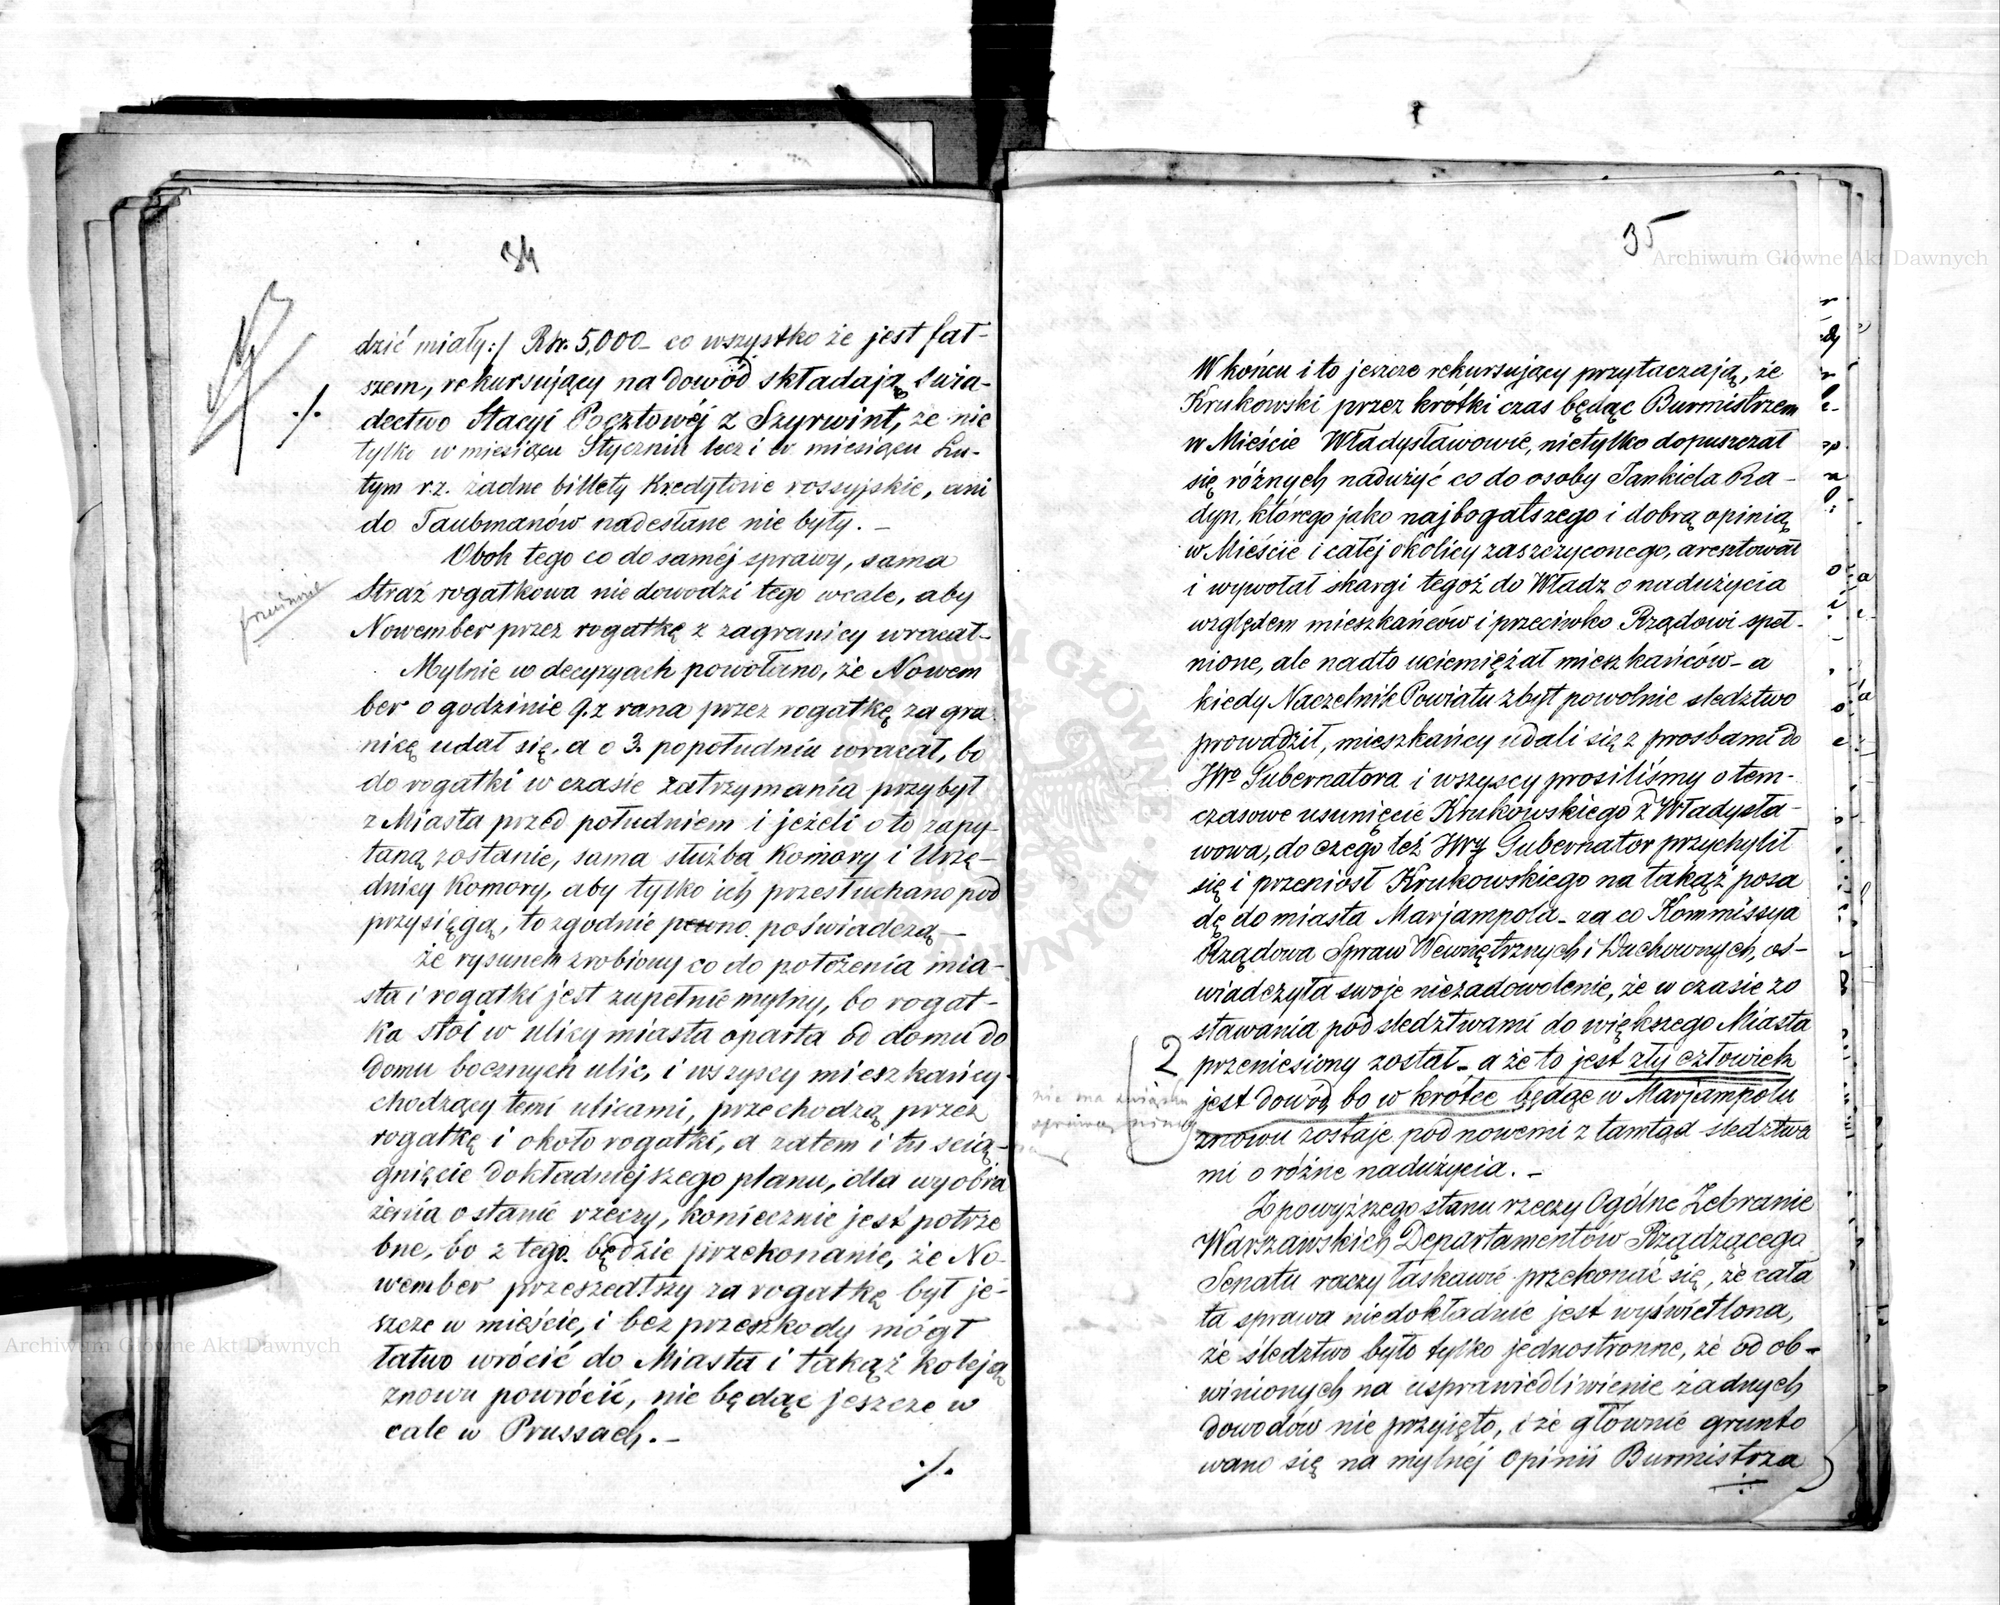 34
dzić miały:/ Rsr. 5,000 – co wszystko że jest fał-
szem, rekursujący na dowód składają świa-
dectwo Stacyi Pocztowéj z Szyrwint, że nie
tylko w miesiącu Styczniu lecz i w miesiącu Lu-
tym r.z. żadne billety Kredytowe rossyjskie, ani
do Taubmanów nadesłane nie były. –
Obok tego co do saméj sprawy, sama
Straż rogatkowa nie dowodzi tego wcale, aby
Nowember przez rogatkę z zagranicy wracał –
Mylnie w decyzyach powołano, że Nowem
ber o godzinie 9. z rana przez rogatkę za gra
nicę udał się, a o 3. popołudniu wracał, bo
do rogatki w czasie zatrzymania przybył
z Miasta przed południem i jeżeli o to zapy-
taną zostanie, sama służba Komory i Urzę-
dnicy Komory, aby tylko ich przesłuchano pod
przysięgą, to zgodnie pewno poświadczą –
że rysunek zrobiony co do położenia mia-
sta i rogatki jest zupełnie mylny, bo rogat-
ka stoi w ulicy miasta oparta od domu do
domu bocznych ulic, i wszyscy mieszkańcy
chodzący temi ulicami, przechodzą przez
rogatkę i około rogatki, a zatem i tu scią-
gnięcie dokładniejszego planu, dla wyobra
żenia o stanie rzeczy, koniecznie jest potrze
bne, bo z tego będzie przekonanie, że No-
wember przeszedłszy za rogatkę był je-
szcze w mieście, i bez przeszkody mógł
łatwo wrócić do Miasta i takąż koleją
znowu powrócić, nie będąc jeszcze w
cale w Prussach. –
./.
35
W końcu i to jeszcze rekursujący przytaczają, że
Krukowski przez krótki czas będąc Burmistrzem
w Mieście Władysławowie, nietylko dopuszczał
się różnych nadużyć co do osoby Jankiela Ra-
dyn, którego jako najbogatszego i dobrą opinią
w Mieście i całéj okolicy zaszczyconego, aresztował
i wywołał skargi tegoż do Władz o nadużycia
względem mieszkańców i przeciwko Rządowi speł-
nione, ale nadto uciemiężał mieszkańców – a
kiedy Naczelnik Powiatu zbyt powolnie śledztwo
prowadził, mieszkańcy udali się z prosbami do
JWo Gubernatora i wszyscy prosiliśmy o tem-
czasowe usunięcie Krukowskiego z Władysła-
wowa, do czego też JWy Gubernator przychylił
się i przeniosł Krukowskiego na takąż posa
dę do miasta Marjampola – za co Kommissya
Rządowa Spraw Wewnętrznych i Duchownych, oś-
wiadczyła swoje niezadowolenie, że w czasie zo
stawania pod śledztwami do większego Miasta
2 przeniesiony został – a że to jest zły człowiek
jest dowód bo w krótce będąc w Marjampolu
znowu zostaje pod nowemi z tamtąd śledztwa
mi o różne nadużycia. –
nie ma związku
Z powyższego stanu rzeczy Ogólne Zebranie
Warszawskich Departamentów Rządzącego
Senatu raczy łaskawie przekonać się, że cała
ta sprawa niedokładnie jest wyświetlona,
że śledztwo było tylko jednostronne, że od ob-
winionych na usprawiedliwienie żadnych
dowodów nie przyjęto, i że głównie grunto
wano się na mylnéj opinii Burmistrza
Archiwum Główne Akt Dawnych
Archiwum Główne Akt Dawnych